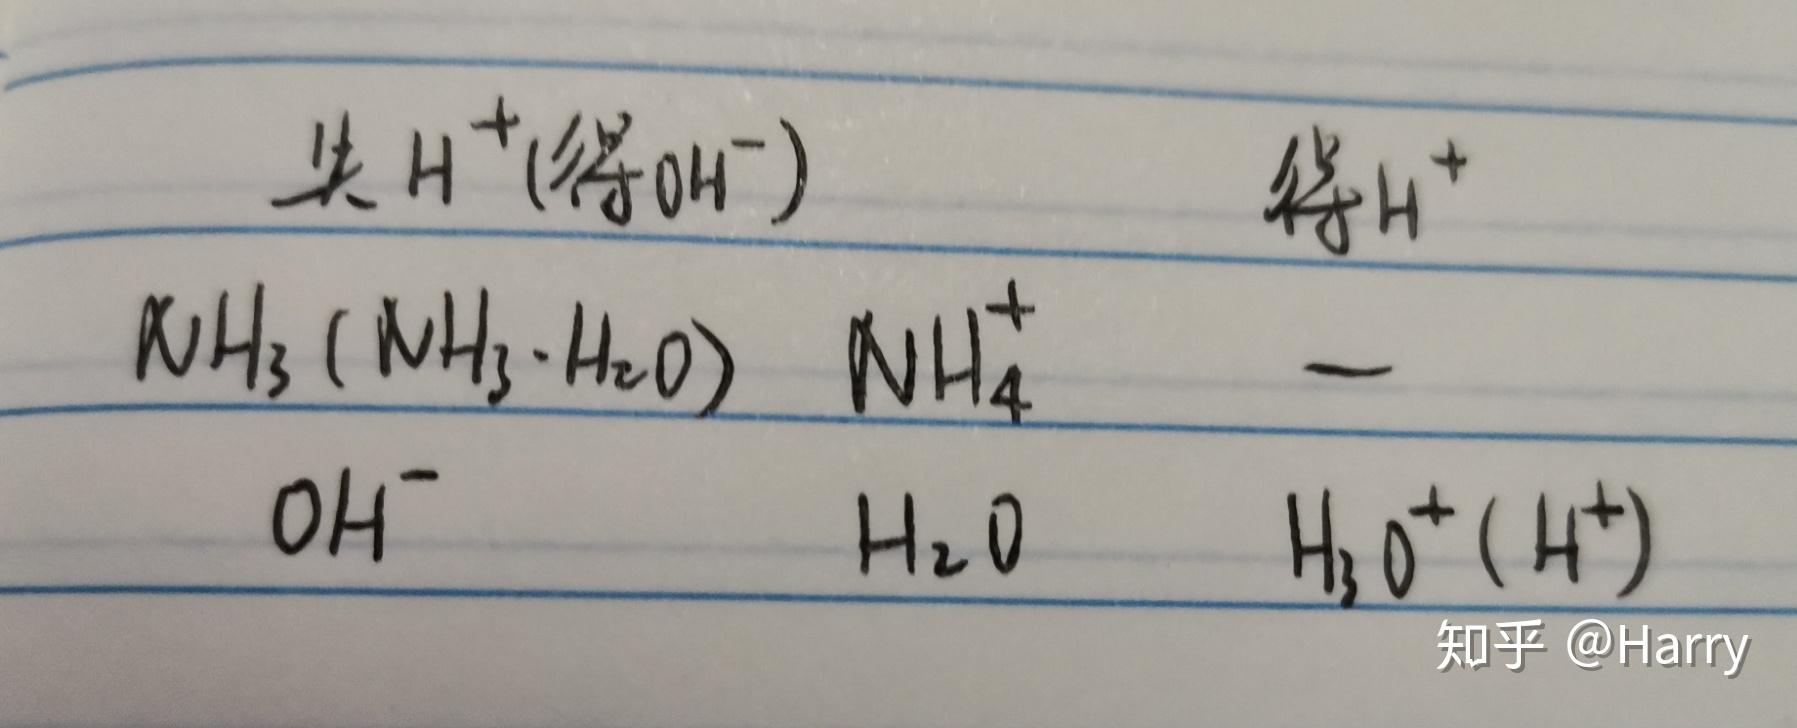 失H⁺(得OH⁻) 得H⁺
NH₃(NH₃·H₂O) NH₄⁺ —
OH⁻ H₂O H₃O⁺(H⁺)
知乎 @Harry